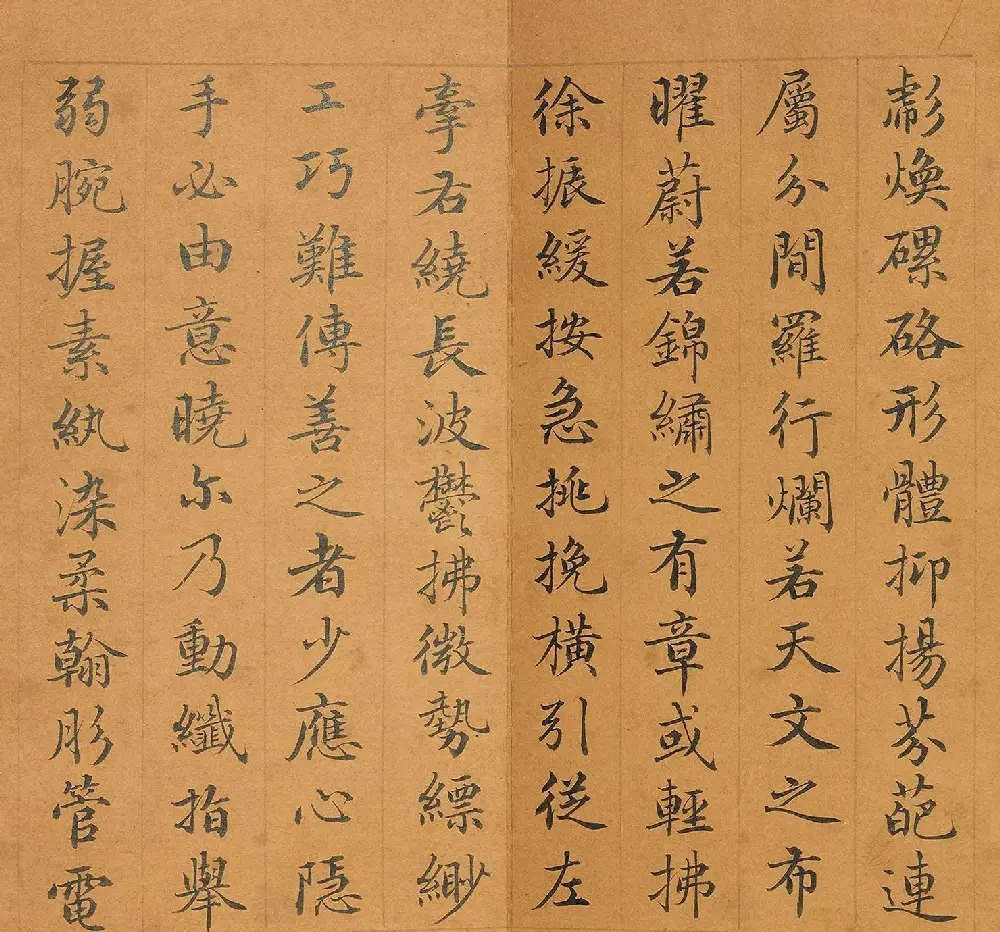 彪煥磥硌形體抑揚芬葩連
屬分間羅行爛若天文之布
曜蔚若錦繡之有章或輕拂
徐振緩按急挑挽橫引従左
牽右繞長波鬱拂微勢縹緲
工巧難傳善之者少應心隱
手必由意曉尓乃動纖指舉
弱腕握素紈染柔翰彤管電